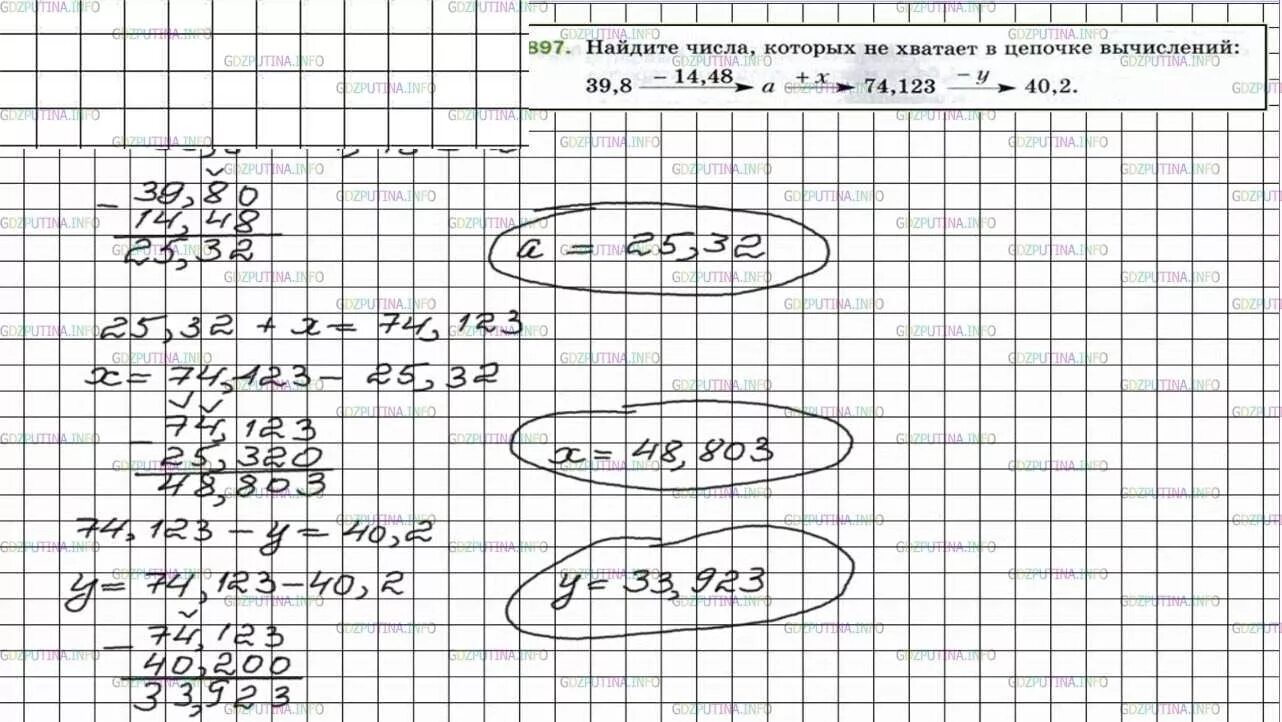 897. Найдите числа, которых не хватает в цепочке вычислений:
39,8 − 14,48 → a + x → 74,123 − y → 40,2.
39,80
− 14,48
25,32
a = 25,32
25,32 + x = 74,123
x = 74,123 − 25,32
74,123
− 25,320
48,803
x = 48,803
74,123 − y = 40,2
y = 74,123 − 40,2
74,123
− 40,200
33,923
y = 33,923
GDZPUTINA.INFO